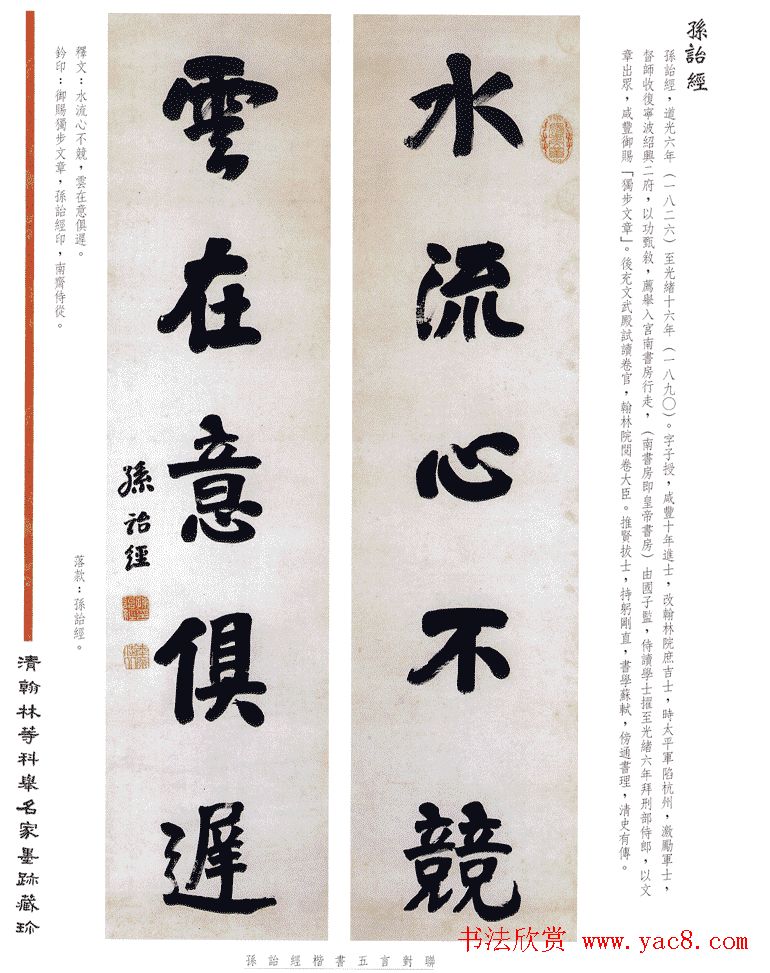 孫詒經
孫詒經，道光六年（一八二六）至光緒十六年（一八九〇）。字子授，咸豐十年進士，改翰林院庶吉士，時太平軍陷杭州，激勵軍士，
督師收復寧波紹興二府，以功甄敘，薦舉入宮南書房行走，（南書房即皇帝書房）由國子監，侍讀學士擢至光緒六年拜刑部侍郎，以文
章出眾，咸豐御賜「獨步文章」。後充文武殿試讀卷官，翰林院閱卷大臣。推賢拔士，持躬剛直，書學蘇軾，傍通書理，清史有傳。
水流心不競
雲在意俱遲
孫詒經
釋文：水流心不競，雲在意俱遲。
落款：孫詒經。
鈐印：御賜獨步文章，孫詒經印，南齋侍從。
清翰林等科舉名家墨跡藏珍
孫詒經楷書五言對聯
书法欣赏 www.yac8.com